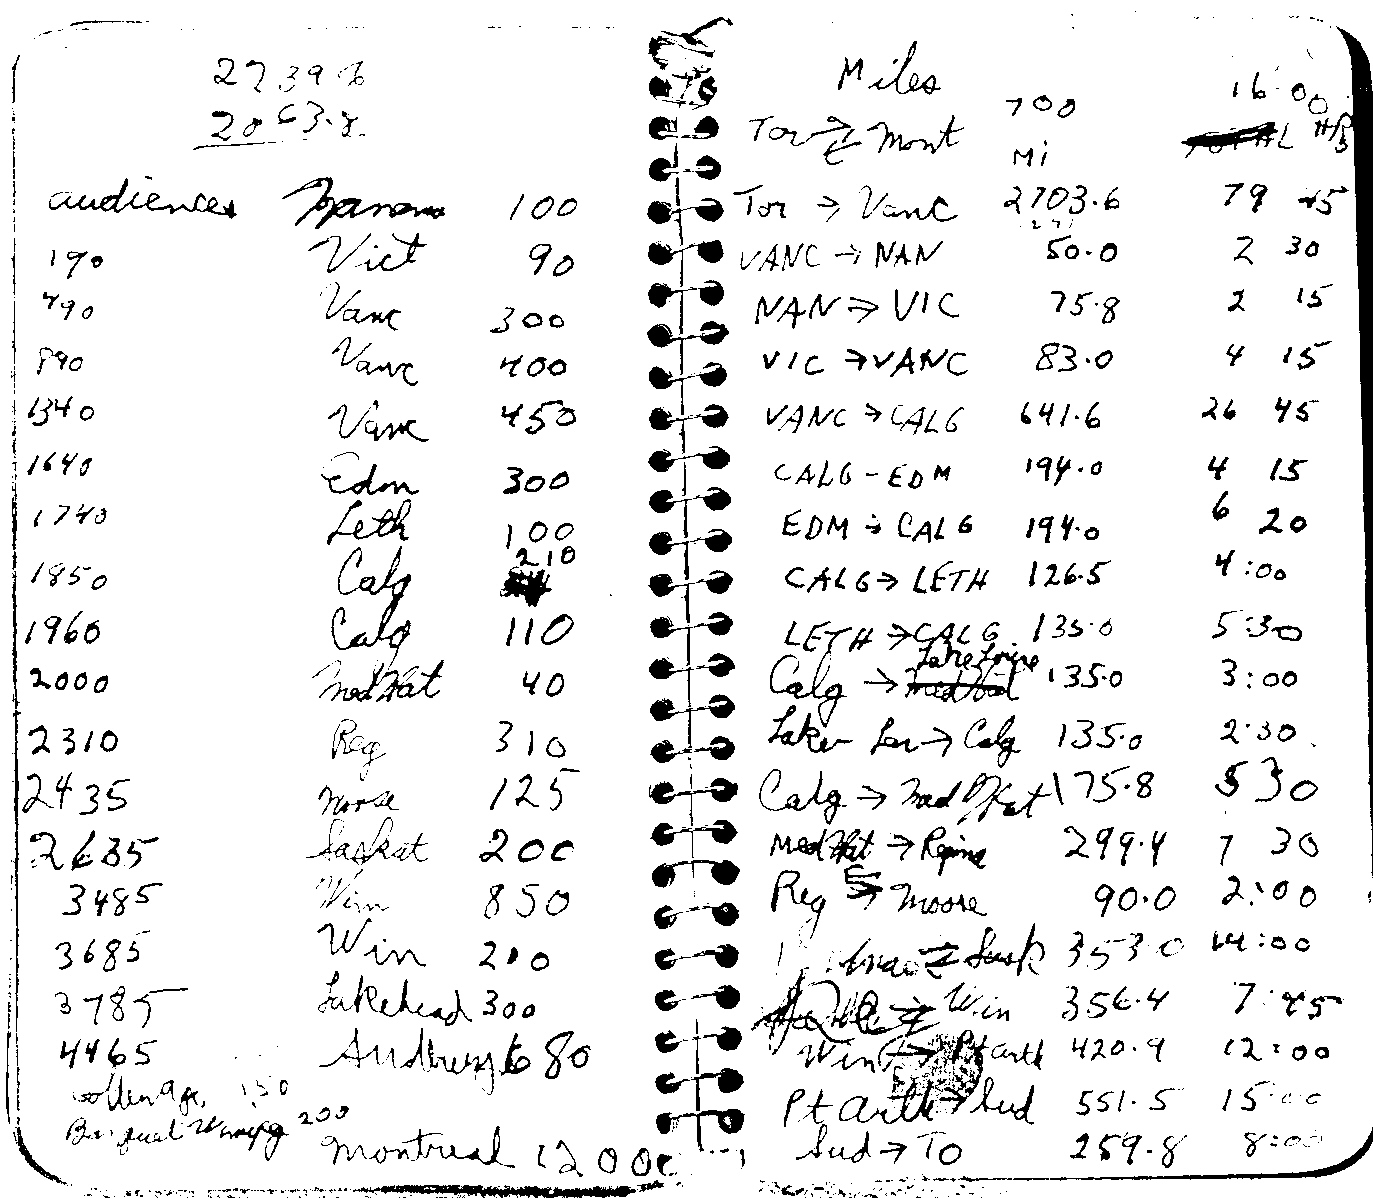 2063.8
audiences 100
190 Vict 90
490 Vanc 300
890 Vanc 400
1340 Vanc 450
1640 Edm 300
1740 Leth 100
1850 Calg 210
1960 Calg 110
2000 Med Hat 40
2310 Reg 310
2435 Moose 125
2635 Saskat 200
3485 Win 850
3685 Win 200
3785 Lakehead 300
4465 Sudbury 680
150
200
Montreal
Miles
Tor ⇄ Mont 700 16.00
Mi HRS
Tor → Vanc 2703.6 79 45
VANC → NAN 50.0 2 30
NAN → VIC 75.8 2 15
VIC → VANC 83.0 4 15
VANC → CALG 641.6 26 45
CALG - EDM 194.0 4 15
EDM → CALG 194.0 6 20
CALG → LETH 126.5 4:00
LETH → CALG 135.0 5:30
Calg → Lake Louise 135.0 3:00
Calg 135.0 2:30
Calg → Med Hat 175.8 5 30
Med Hat → Regina 299.4 7 30
Reg ⇄ Moose 90.0 2:00
Sask 353.0 14:00
Win 356.4 7:45
Win → Pt Arth 420.9 12:00
Pt Arth → Sud 551.5 15:00
Sud → TO 259.8 8:00